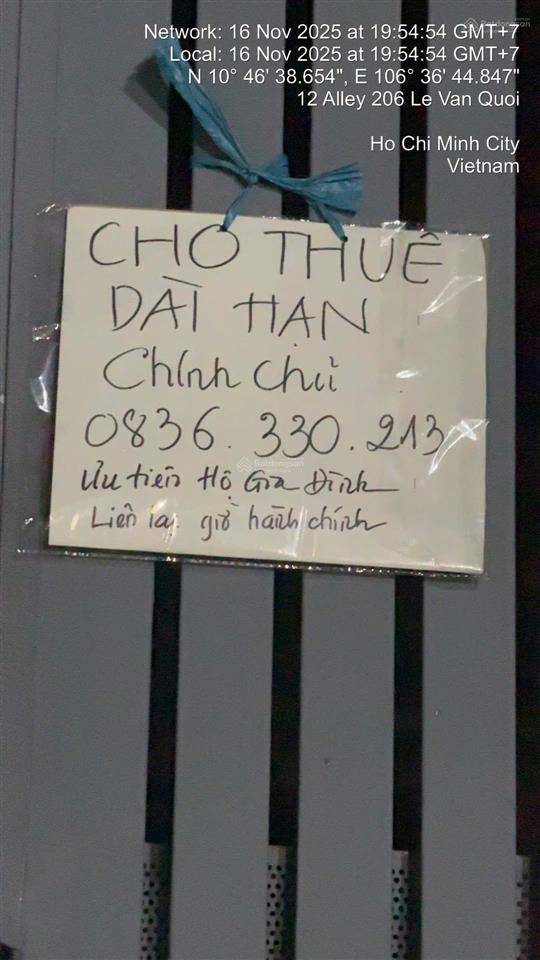 Batdongsan
Network: 16 Nov 2025 at 19:54:54 GMT+7
Local: 16 Nov 2025 at 19:54:54 GMT+7
N 10° 46' 38.654", E 106° 36' 44.847"
12 Alley 206 Le Van Quoi
Ho Chi Minh City
Vietnam
CHO THUÊ
DÀI HẠN
Chính Chủ
0836.330.213
Batdongsan
Ưu tiên Hộ Gia Đình
Liên lạc giờ hành chính